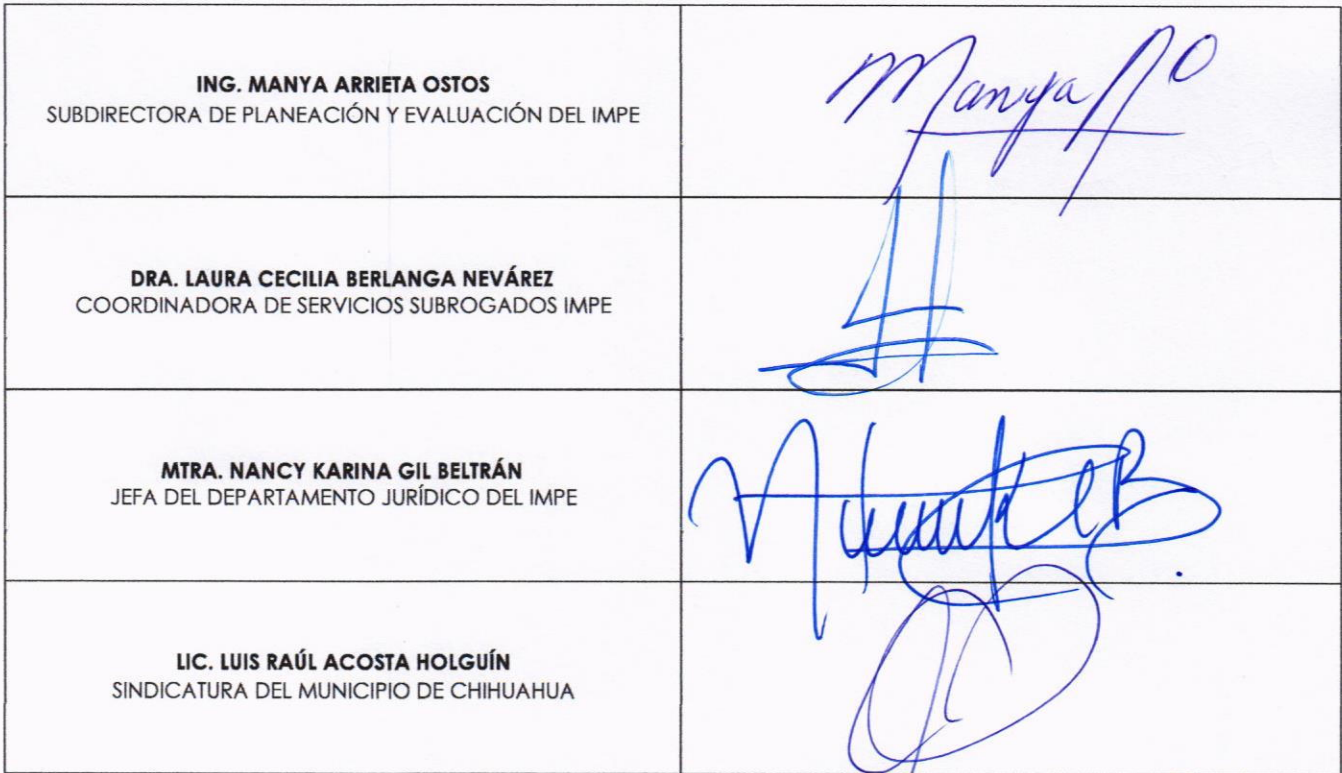 ING. MANYA ARRIETA OSTOS
SUBDIRECTORA DE PLANEACIÓN Y EVALUACIÓN DEL IMPE
Manya AO
DRA. LAURA CECILIA BERLANGA NEVÁREZ
COORDINADORA DE SERVICIOS SUBROGADOS IMPE
MTRA. NANCY KARINA GIL BELTRÁN
JEFA DEL DEPARTAMENTO JURÍDICO DEL IMPE
LIC. LUIS RAÚL ACOSTA HOLGUÍN
SINDICATURA DEL MUNICIPIO DE CHIHUAHUA